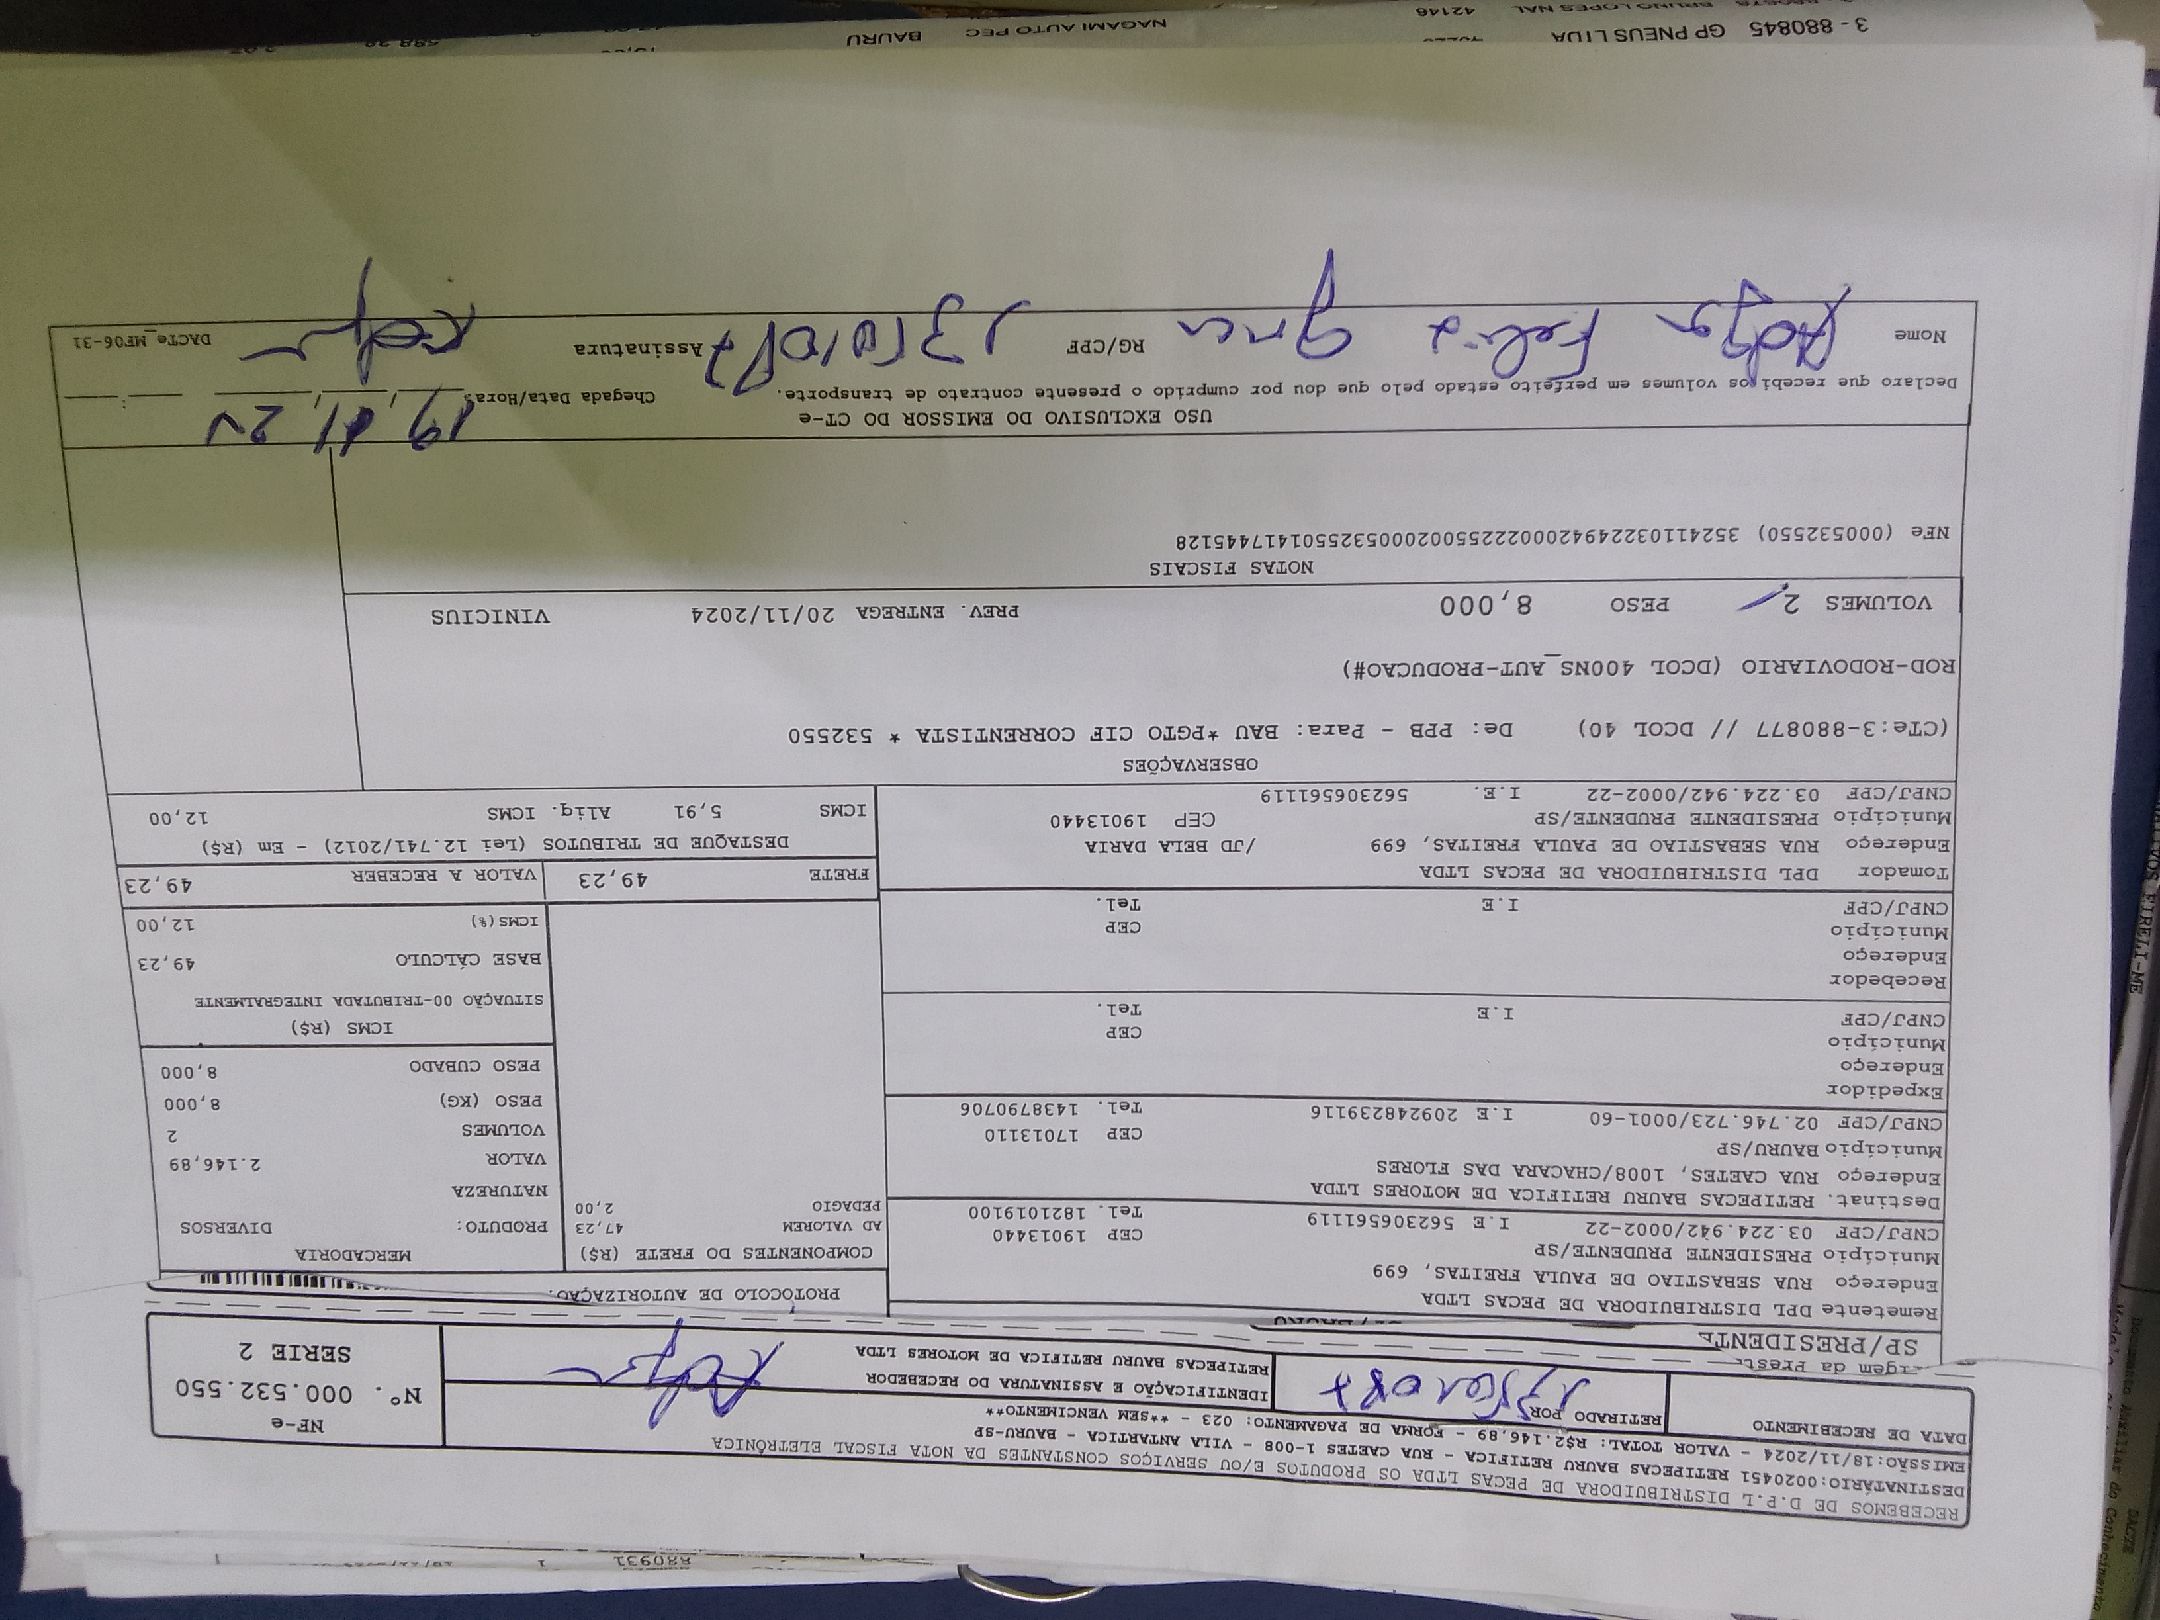 RECEBEMOS DE D.P.L DISTRIBUIDORA DE PECAS LTDA OS PRODUTOS E/OU SERVIÇOS CONSTANTES DA NOTA FISCAL ELETRÔNICA
DESTINATÁRIO:0020451 RETIPECAS BAURU RETIFICA - RUA CAETES 1-008 - VILA ANTARTICA - BAURU-SP
EMISSÃO:18/11/2024 - VALOR TOTAL: R$2.146,89 - FORMA DE PAGAMENTO: 023 - **SEM VENCIMENTO**
NF-e
Nº. 000.532.550
SERIE 2
DATA DE RECEBIMENTO
RETIRADO POR
IDENTIFICAÇÃO E ASSINATURA DO RECEBEDOR
RETIPECAS BAURU RETIFICA DE MOTORES LTDA
SP/PRESIDENTE
PROTOCOLO DE AUTORIZAÇÃO:
Remetente DPL DISTRIBUIDORA DE PECAS LTDA
Endereço RUA SEBASTIAO DE PAULA FREITAS, 699
Município PRESIDENTE PRUDENTE/SP CEP 19013440
CNPJ/CPF 03.224.942/0002-22 I.E 562306561119 Tel. 1821019100
Destinat. RETIPECAS BAURU RETIFICA DE MOTORES LTDA
Endereço RUA CAETES, 1008/CHACARA DAS FLORES
Município BAURU/SP CEP 17013110
CNPJ/CPF 02.746.723/0001-60 I.E 209248239116 Tel. 1438790706
Expedidor
Endereço
Município CEP
CNPJ/CPF I.E Tel.
Recebedor
Endereço
Município CEP
CNPJ/CPF I.E Tel.
Tomador DPL DISTRIBUIDORA DE PECAS LTDA
Endereço RUA SEBASTIAO DE PAULA FREITAS, 699 /JD BELA DARIA
Município PRESIDENTE PRUDENTE/SP CEP 19013440
CNPJ/CPF 03.224.942/0002-22 I.E. 562306561119
COMPONENTES DO FRETE (R$)
AD VALOREM 47,23
PEDAGIO 2,00
MERCADORIA
PRODUTO: DIVERSOS
NATUREZA
VALOR 2.146,89
VOLUMES 2
PESO (KG) 8,000
PESO CUBADO 8,000
ICMS (R$)
SITUAÇÃO 00-TRIBUTADA INTEGRALMENTE
BASE CÁLCULO 49,23
ICMS(%) 12,00
FRETE 49,23 VALOR A RECEBER 49,23
DESTAQUE DE TRIBUTOS (Lei 12.741/2012) - Em (R$)
ICMS 5,91 Alíq. ICMS 12,00
OBSERVAÇÕES
(CTe:3-880877 // DCOL 40) De: PPB - Para: BAU *PGTO CIF CORRENTISTA * 532550
ROD-RODOVIARIO (DCOL 400NS_AUT-PRODUCAO#)
VOLUMES 2 PESO 8,000 PREV. ENTREGA 20/11/2024 VINICIUS
NOTAS FISCAIS
NFe (000532550) 35241103224942000222550020005325501417445128
USO EXCLUSIVO DO EMISSOR DO CT-e
Declaro que recebi os volumes em perfeito estado pelo que dou por cumprido o presente contrato de transporte.
Chegada Data/Hora: 19, 11, 24
Nome RG/CPF Assinatura
DACTe_MF06-31
3 - 880845 GP PNEUS LTDA
42146 NAGAMI AUTO PEC BAURU
880931 1